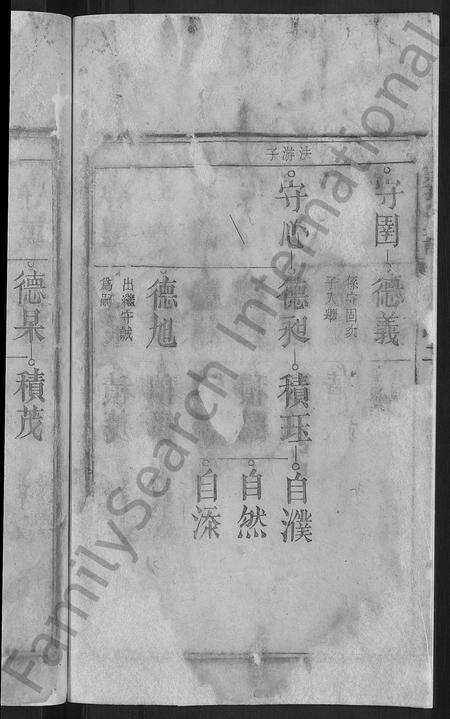 法游子
守固
德義
係守固次
子入繼
守心
德昶
積珏
自濮
自然
自添
德旭
出繼守誠
爲嗣
德杲
積茂
FamilySearch International